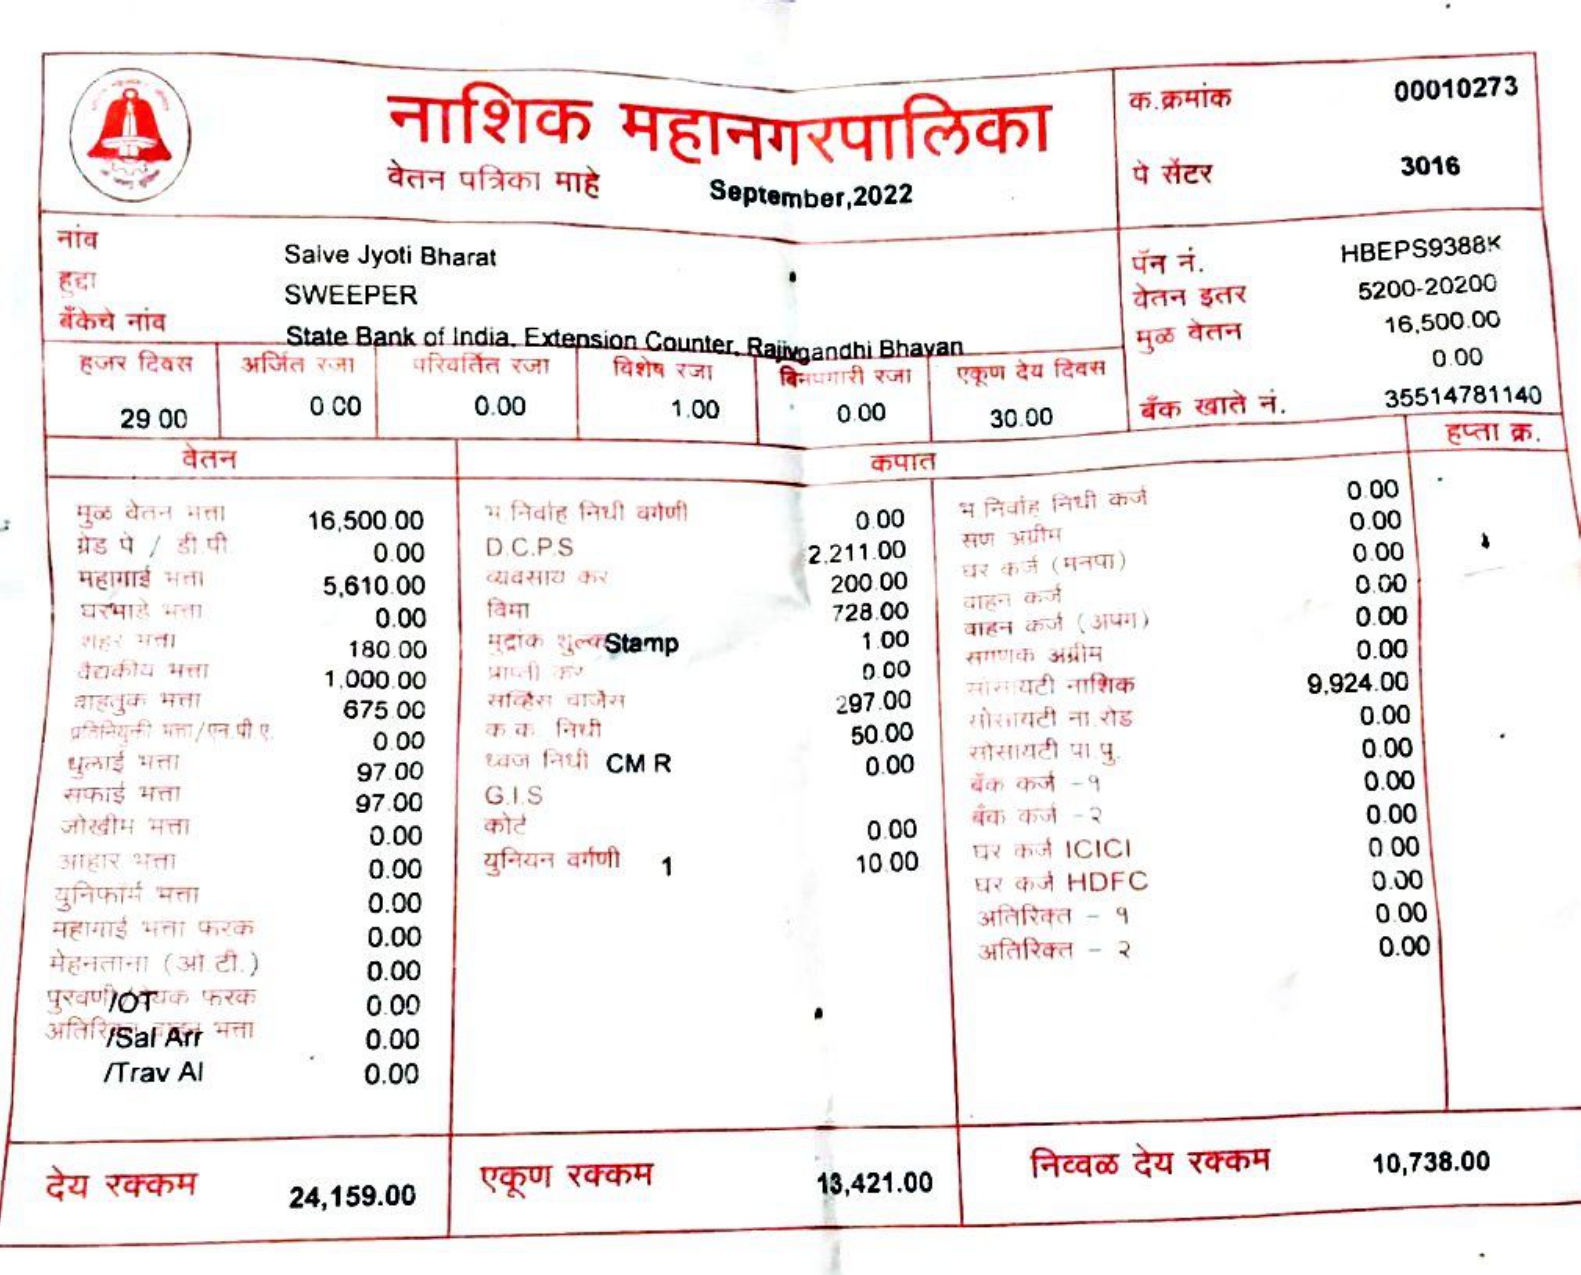 नाशिक महानगरपालिका
वेतन पत्रिका माहे September,2022
क.क्रमांक 00010273
पे सेंटर 3016
नांव Salve Jyoti Bharat
हुद्दा SWEEPER
बँकेचे नांव State Bank of India, Extension Counter, Rajivgandhi Bhavan
पॅन नं. HBEPS9388K
वेतन इतर 5200-20200
मुळ वेतन 16,500.00
0.00
बँक खाते नं. 35514781140
हजर दिवस अर्जित रजा परिवर्तित रजा विशेष रजा बिनपगारी रजा एकूण देय दिवस
29.00 0.00 0.00 1.00 0.00 30.00
वेतन कपात हप्ता क्र.
मुळ वेतन भत्ता 16,500.00
ग्रेड पे / डी.पी. 0.00
महागाई भत्ता 5,610.00
घरभाडे भत्ता 0.00
शहर भत्ता 180.00
वैद्यकीय भत्ता 1,000.00
वाहतुक भत्ता 675.00
प्रतिनियुक्ती भत्ता/एन.पी.ए. 0.00
धुलाई भत्ता 97.00
सफाई भत्ता 97.00
जोखीम भत्ता 0.00
आहार भत्ता 0.00
युनिफॉर्म भत्ता 0.00
महागाई भत्ता फरक 0.00
मेहनताना (ओ.टी.) 0.00
पुरवणी /OT फरक 0.00
/Sal Arr भत्ता 0.00
/Trav Al 0.00
भ.निर्वाह निधी वर्गणी 0.00
D.C.P.S 2,211.00
व्यवसाय कर 200.00
विमा 728.00
मुद्रांक शुल्क Stamp 1.00
प्राप्ती कर 0.00
सर्व्हिस चार्जेस 297.00
क.क. निधी 50.00
ध्वज निधी CM R 0.00
G.I.S
कोर्ट 0.00
युनियन वर्गणी 1 10.00
भ.निर्वाह निधी कर्ज 0.00
सण अग्रीम 0.00
घर कर्ज (मनपा) 0.00
वाहन कर्ज 0.00
वाहन कर्ज (अपग) 0.00
संगणक अग्रीम 0.00
सोसायटी नाशिक 9,924.00
सोसायटी ना.रोड 0.00
सोसायटी पा.पु. 0.00
बँक कर्ज -१ 0.00
बँक कर्ज -२ 0.00
घर कर्ज ICICI 0.00
घर कर्ज HDFC 0.00
अतिरिक्त - १ 0.00
अतिरिक्त - २ 0.00
देय रक्कम 24,159.00
एकूण रक्कम 13,421.00
निव्वळ देय रक्कम 10,738.00